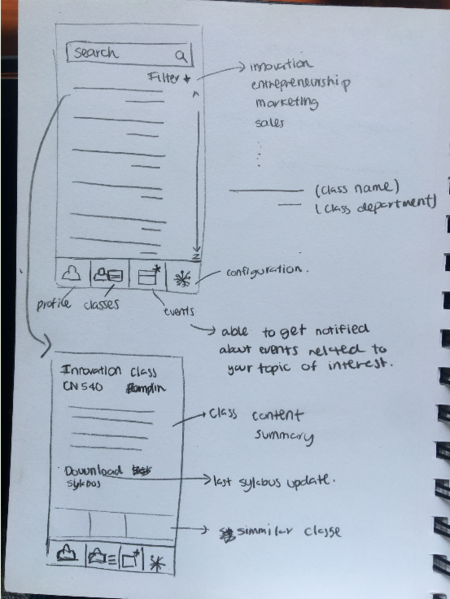 search
Filter +
inovation
entrepreneurship
marketing
sales
A
(class name)
(class department)
configuration.
profile classes
events
able to get notified
about events related to
your topic of interest.
Innovation Class
CN 540
class content
summary
Download
sylabus
last sylabus update.
simmilar classe